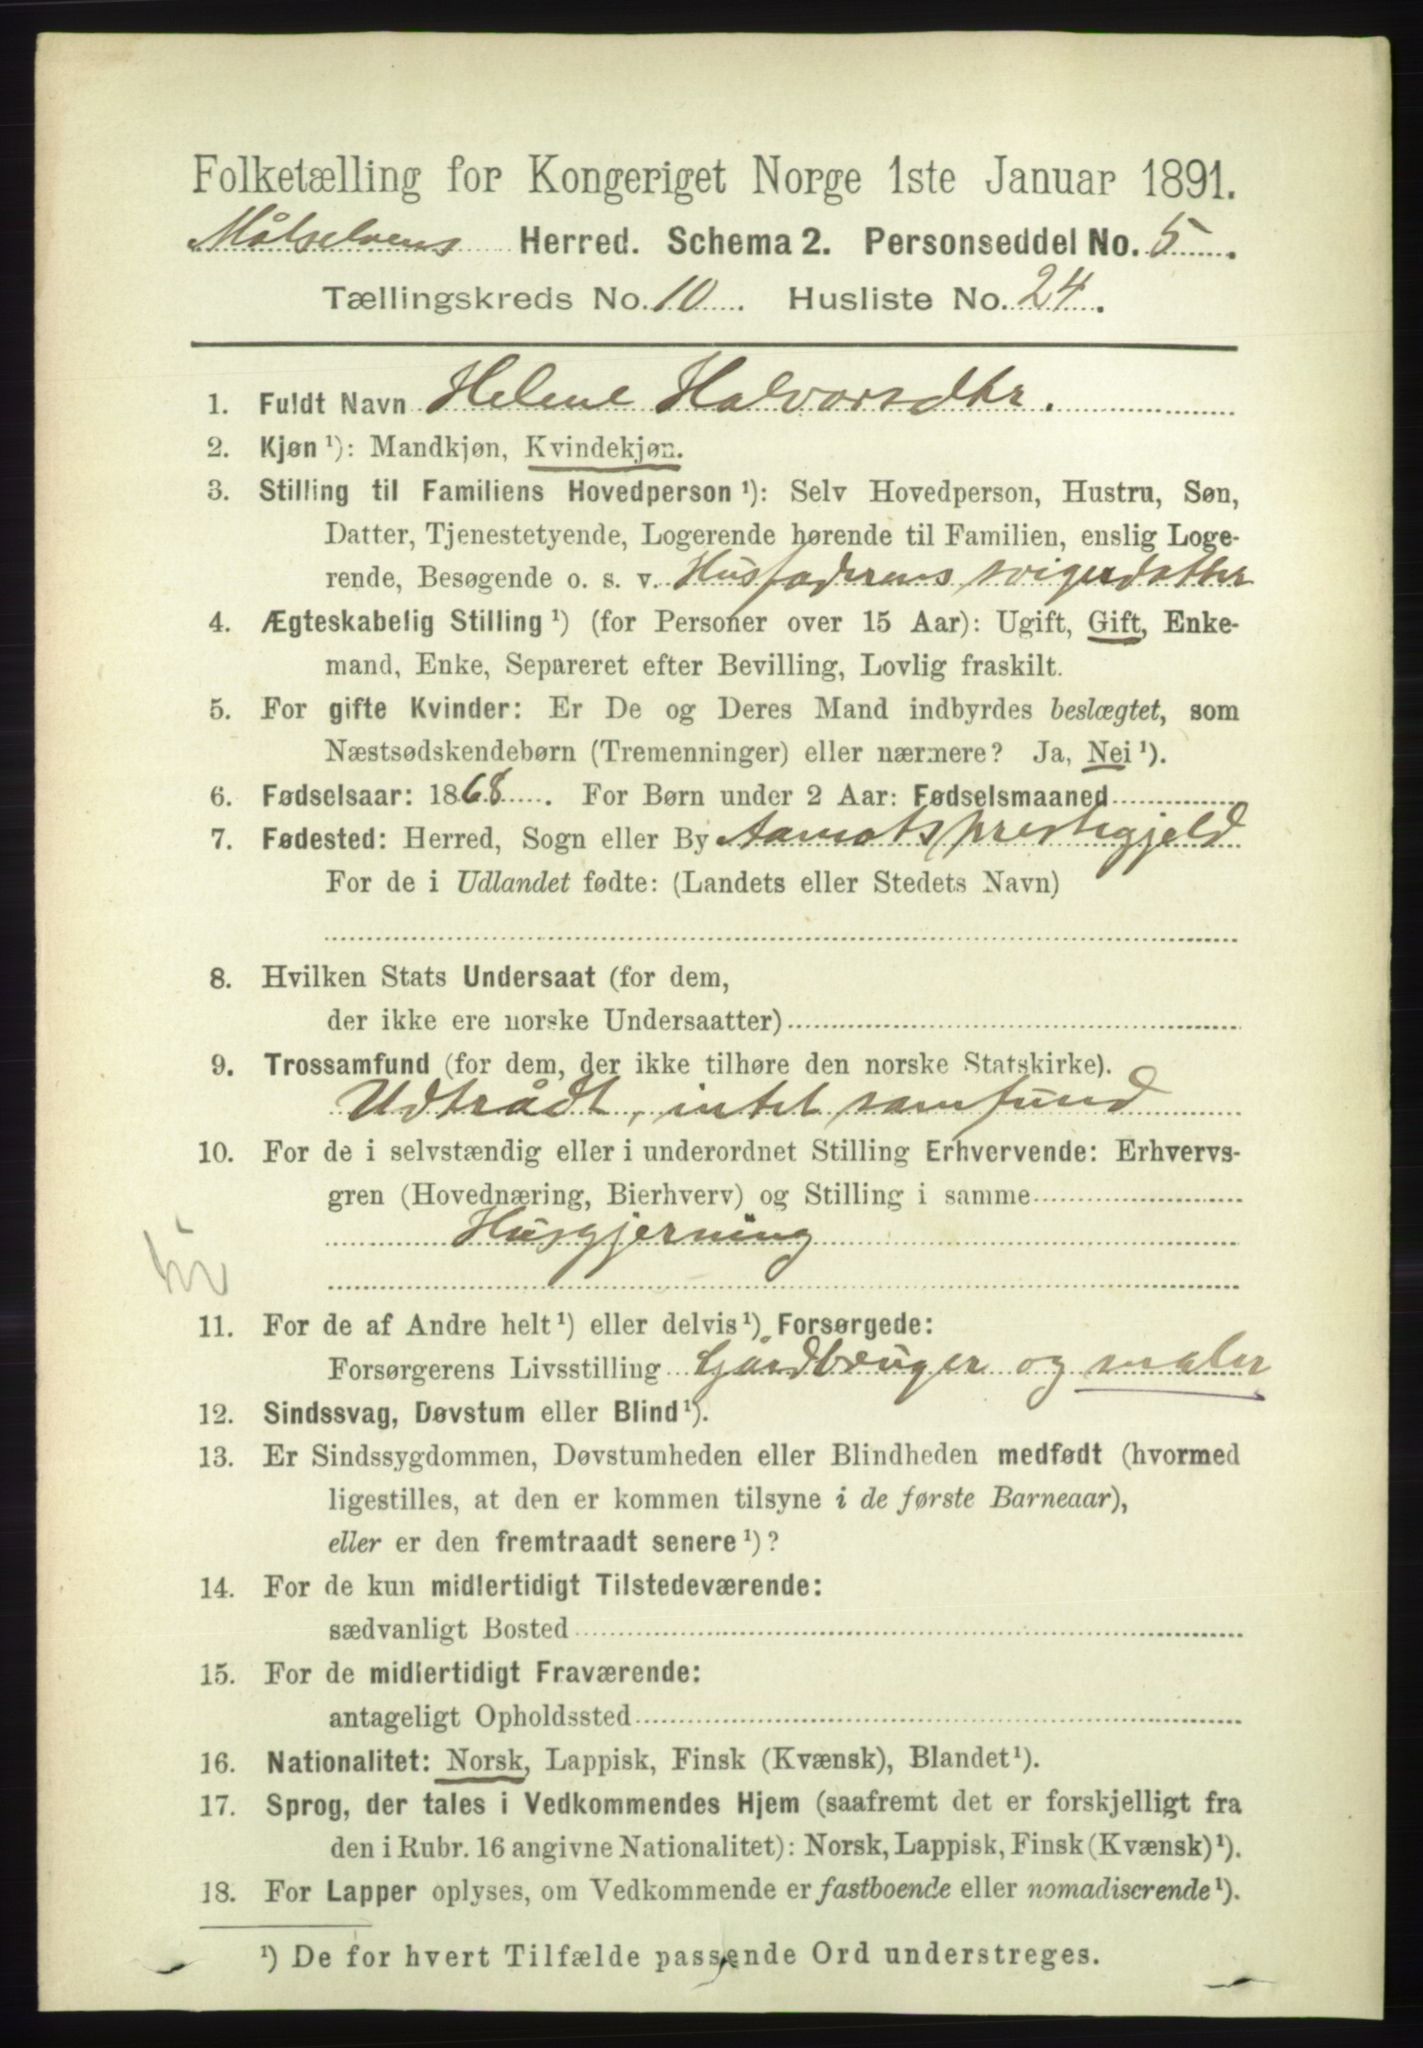 Folketælling for Kongeriget Norge 1ste Januar 1891.
Målselvens Herred. Schema 2. Personseddel No. 5.
Tællingskreds No. 10. Husliste No. 24.
1. Fuldt Navn Helene Halvorsdtr.
2. Kjøn ¹): Mandkjøn, Kvindekjøn.
3. Stilling til Familiens Hovedperson ¹): Selv Hovedperson, Hustru, Søn,
Datter, Tjenestetyende, Logerende hørende til Familien, enslig Loge-
rende, Besøgende o. s. v. Husfaderens svigerdatter
4. Ægteskabelig Stilling ¹) (for Personer over 15 Aar): Ugift, Gift, Enke-
mand, Enke, Separeret efter Bevilling, Lovlig fraskilt.
5. For gifte Kvinder: Er De og Deres Mand indbyrdes beslægtet, som
Næstsødskendebørn (Tremenninger) eller nærmere? Ja, Nei ¹).
6. Fødselsaar: 1868. For Børn under 2 Aar: Fødselsmaaned
7. Fødested: Herred, Sogn eller By Aamots prestegjeld
For de i Udlandet fødte: (Landets eller Stedets Navn)
8. Hvilken Stats Undersaat (for dem,
der ikke ere norske Undersaatter)
9. Trossamfund (for dem, der ikke tilhøre den norske Statskirke).
Udtrådt, intet samfund
10. For de i selvstændig eller i underordnet Stilling Erhvervende: Erhvervs-
gren (Hovednæring, Bierhverv) og Stilling i samme
Husgjerning
11. For de af Andre helt ¹) eller delvis ¹) Forsørgede:
Forsørgerens Livsstilling Gårdbruger og maler
12. Sindssvag, Døvstum eller Blind ¹).
13. Er Sindssygdommen, Døvstumheden eller Blindheden medfødt (hvormed
ligestilles, at den er kommen tilsyne i de første Barneaar),
eller er den fremtraadt senere ¹)?
14. For de kun midlertidigt Tilstedeværende:
sædvanligt Bosted
15. For de midlertidigt Fraværende:
antageligt Opholdssted
16. Nationalitet: Norsk, Lappisk, Finsk (Kvænsk), Blandet ¹).
17. Sprog, der tales i Vedkommendes Hjem (saafremt det er forskjelligt fra
den i Rubr. 16 angivne Nationalitet): Norsk, Lappisk, Finsk (Kvænsk) ¹).
18. For Lapper oplyses, om Vedkommende er fastboende eller nomadiserende ¹).
¹) De for hvert Tilfælde passende Ord understreges.